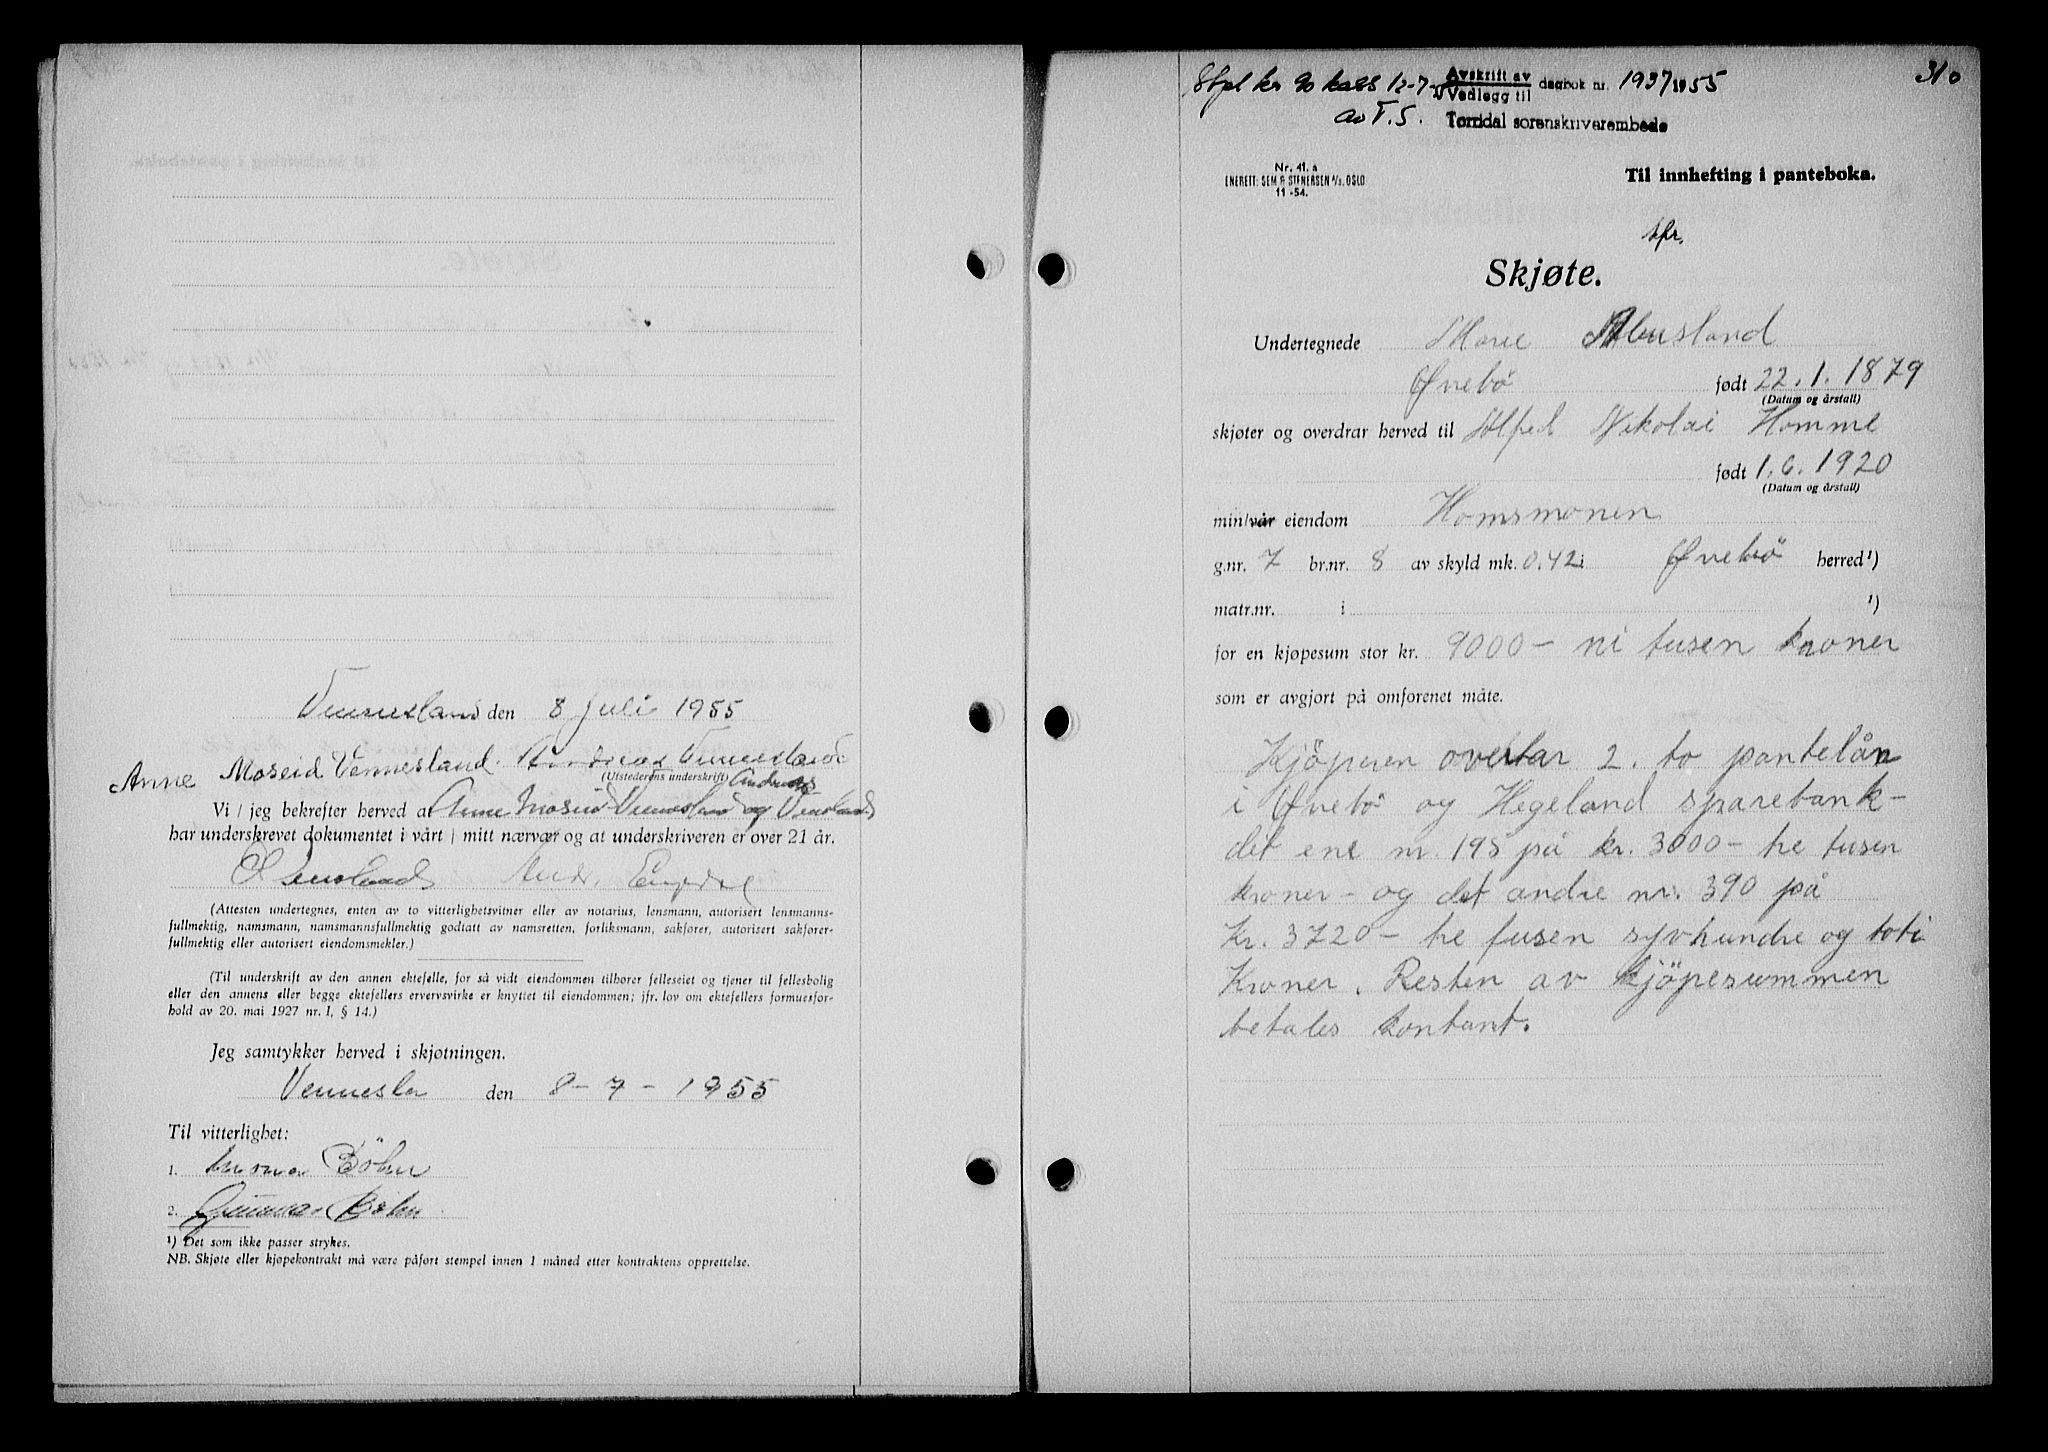 Vennesland den 8 juli 1955
Anne Moseid Vennesland. Andreas Vennesland
(Utstederens underskrift)
Andreas
Vi / jeg bekrefter herved at Anne Moseid Vennesland og Vennesland
har underskrevet dokumentet i vårt / mitt nærvær og at underskriveren er over 21 år.
Andr.
(Attesten undertegnes, enten av to vitterlighetsvitner eller av notarius, lensmann, autorisert lensmanns-
fullmektig, namsmann, namsmannsfullmektig godtatt av namsretten, forliksmann, sakfører, autorisert sakfører-
fullmektig eller autorisert eiendomsmekler.)
(Til underskrift av den annen ektefelle, for så vidt eiendommen tilhører felleseiet og tjener til fellesbolig
eller den annens eller begge ektefellers ervervsvirke er knyttet til eiendommen; jfr. lov om ektefellers formuesfor-
hold av 20. mai 1927 nr. I, § 14.)
Jeg samtykker herved i skjøtningen.
Vennesla den 8 - 7 - 1955
Til vitterlighet:
1. Böhn
2. Gunnar Böhn
¹) Det som ikke passer strykes.
NB. Skjøte eller kjøpekontrakt må være påført stempel innen 1 måned etter kontraktens opprettelse.
310
Stpl kr 90 kass 12-7- Avskrift av
Vedlegg til dagbok nr. 1937 1955
av T.S. Torridal sorenskriverembede
Nr. 41. a
ENERETT: SEM & STENERSEN A/S. OSLO
11 -54.
Til innhefting i panteboka.
Skjøte.
Undertegnede Marie Abusland
Øvebö født 22.1.1879
(Datum og årstall)
skjøter og overdrar herved til Alfred Nikolai Homme
født 1.6.1920
(Datum og årstall)
min/vår eiendom Homsmonen
g.nr. 7 br.nr. 8 av skyld mk. 0.42 i Øvebö herred ¹)
matr.nr. i ¹)
for en kjøpesum stor kr. 9000 - ni tusen kroner
som er avgjort på omforenet måte.
Kjöperen overtar 2. to pantelån
i Øvebö og Hegeland sparebank -
det ene nr. 195 på kr. 3000 - tre tusen
kroner - og det andre nr. 390 på
Kr. 3720 - tre tusen syvhundre og toti
Kroner. Resten av kjöpesummen
betales kontant.